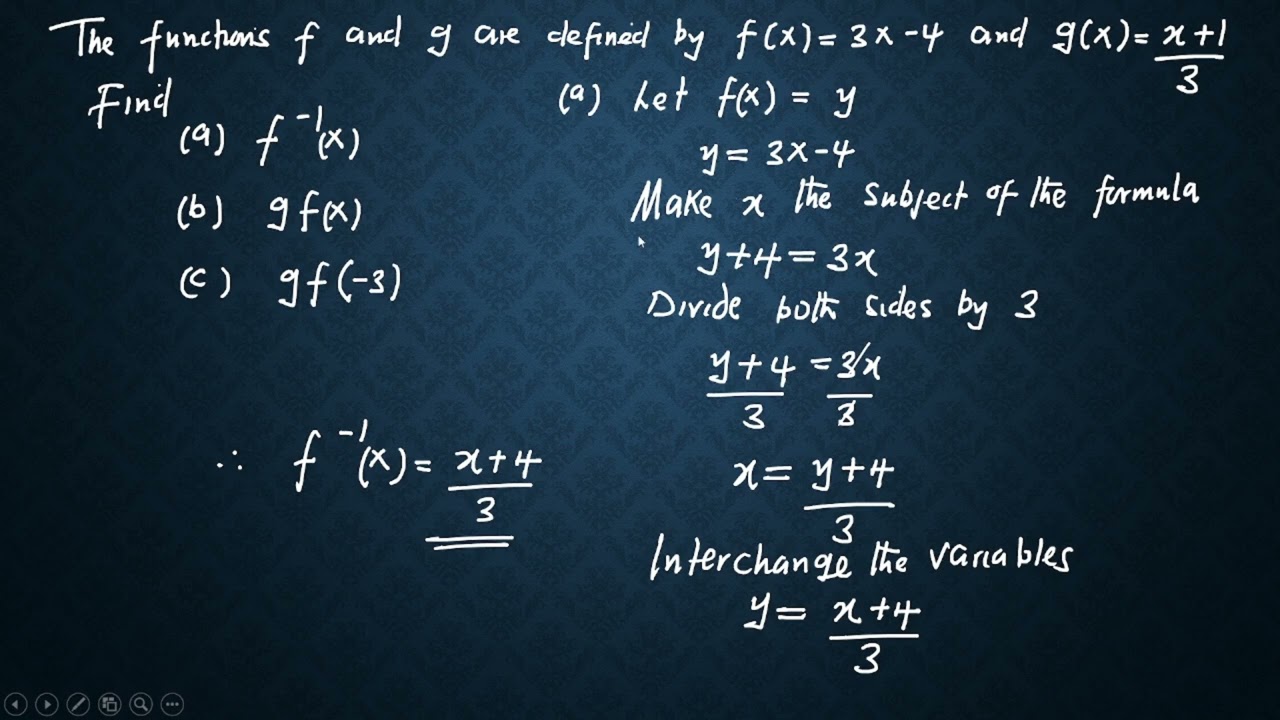 The functions f and g are defined by f(x) = 3x-4 and g(x) = x+1/3
Find
(a) f⁻¹(x)
(b) gf(x)
(c) gf(-3)
(a) Let f(x) = y
y = 3x-4
Make x the subject of the formula
y+4 = 3x
Divide both sides by 3
y+4/3 = 3x/3
x = y+4/3
Interchange the variables
y = x+4/3
∴ f⁻¹(x) = x+4/3